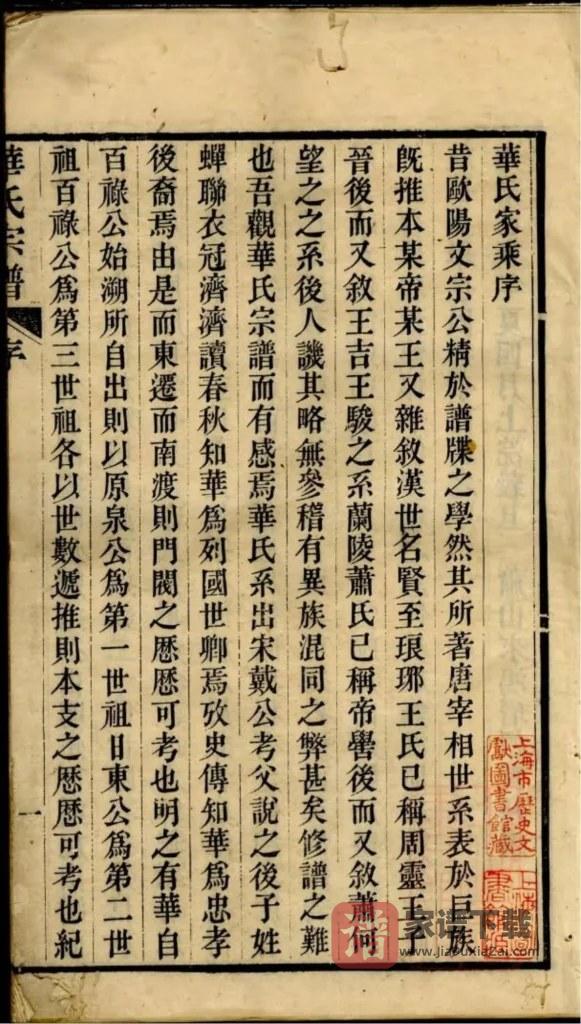 華氏家乘序
昔歐陽文宗公精於譜牒之學然其所著唐宰相世系表於巨族
旣推本某帝某王又雜敘漢世名賢至琅琊王氏已稱周靈王子
晉後而又敘王吉王駿之系蘭陵蕭氏已稱帝嚳後而又敘蕭何
望之之系後人譏其略無參稽有異族混同之弊甚矣修譜之難
也吾觀華氏宗譜而有感焉華氏系出宋戴公考父說之後子姓
蟬聯衣冠濟濟讀春秋知華爲列國世卿焉攷史傳知華爲忠孝
後裔焉由是而東遷而南渡則門閥之歷歷可考也明之有華自
百祿公始溯所自出則以原泉公爲第一世祖日東公爲第二世
祖百祿公爲第三世祖各以世數遞推則本支之歷歷可考也紀
華氏宗譜 序 一
上海市歷史文
獻圖書館藏
家谱下载
www.jiapuxiazai.com